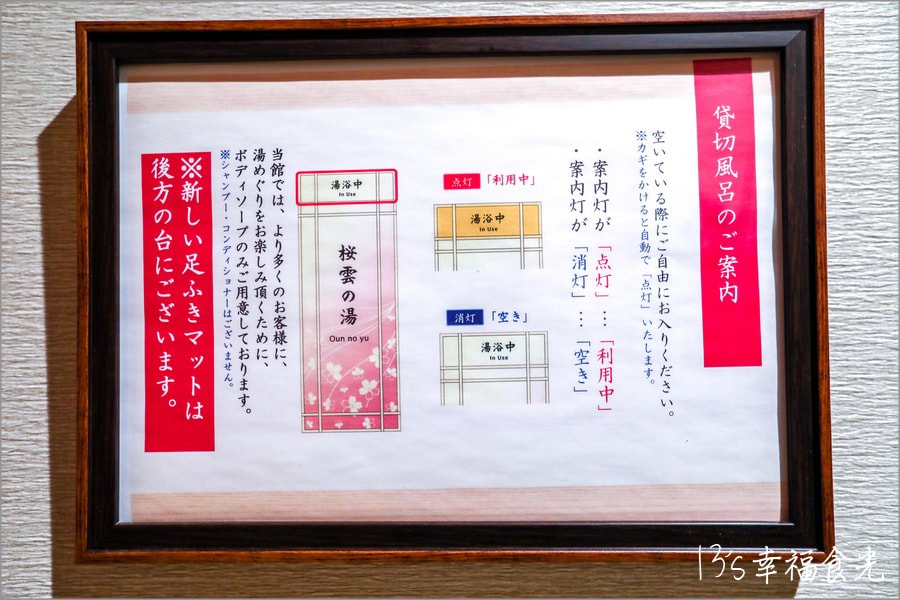 貸切風呂のご案内
空いている際にご自由にお入りください。
※カギをかけると自動で「点灯」いたします。
・案内灯が「点灯」…「利用中」
・案内灯が「消灯」…「空き」
点灯「利用中」
湯浴中
In Use
消灯「空き」
湯浴中
In Use
湯浴中
In Use
桜雲の湯
Oun no yu
当館では、より多くのお客様に、
湯めぐりをお楽しみ頂くために、
ボディソープのみご用意しております。
※シャンプー・コンディショナーはございません。
※新しい足ふきマットは
後方の台にございます。
13's幸福食光